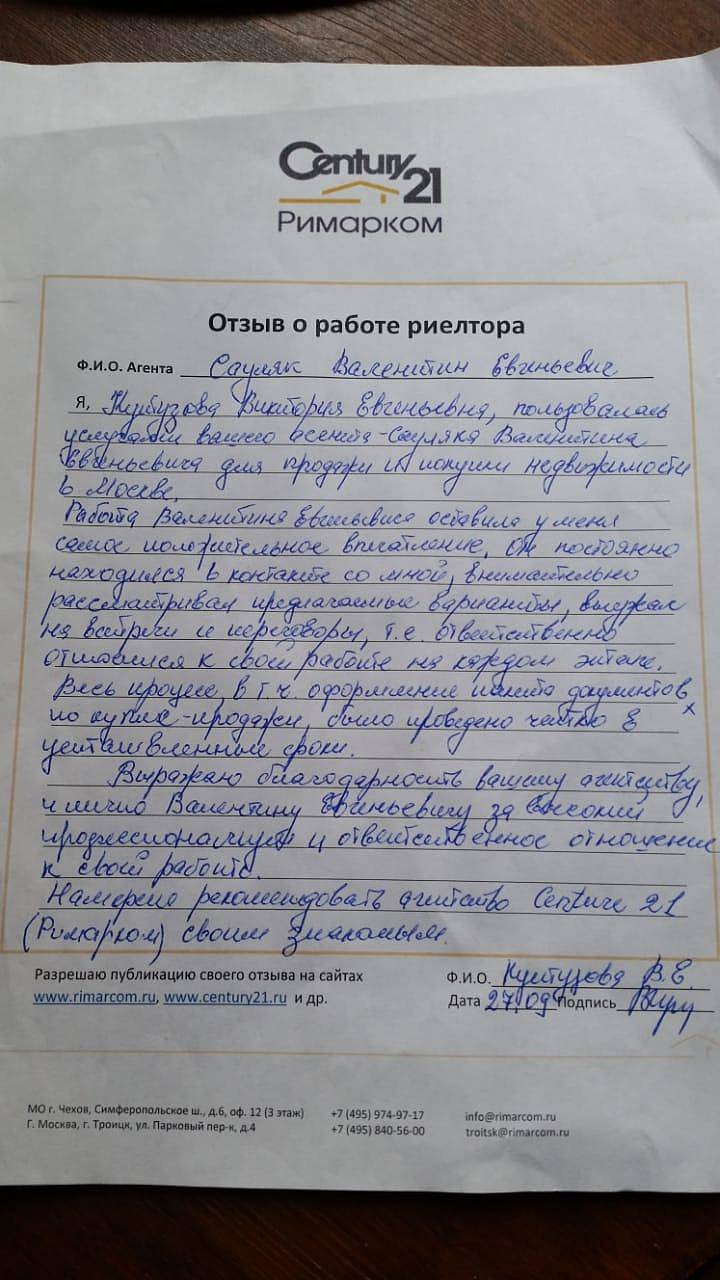 Century 21
Римарком
Отзыв о работе риелтора
Ф.И.О. Агента Сауляк Валентин Евгеньевич
Я, Виктория Евгеньевна, пользовалась
услугами вашего агента - Сауляка Валентина
Евгеньевича для продажи и покупки недвижимости
в Москве.
Работа Валентина Евгеньевича оставила у меня
самое положительное впечатление, он постоянно
находился в контакте со мной, внимательно
рассматривал предлагаемые варианты, выезжал
на встречи и переговоры, т.е. ответственно
относился к своей работе на каждом этапе.
Весь процесс, в т.ч. оформление пакета документов
по купле-продажи, было проведено четко в
установленные сроки.
Выражаю благодарность вашему агентству,
и лично Валентину Евгеньевичу за высокий
профессионализм и ответственное отношение
к своей работе.
Намерена рекомендовать агентство Century 21
(Римарком) своим знакомым.
Разрешаю публикацию своего отзыва на сайтах
www.rimarcom.ru, www.century21.ru и др.
Ф.И.О. В.Е.
Дата 27.09 Подпись
МО г. Чехов, Симферопольское ш., д.6, оф. 12 (3 этаж) +7 (495) 974-97-17 info@rimarcom.ru
Г. Москва, г. Троицк, ул. Парковый пер-к, д.4 +7 (495) 840-56-00 troitsk@rimarcom.ru